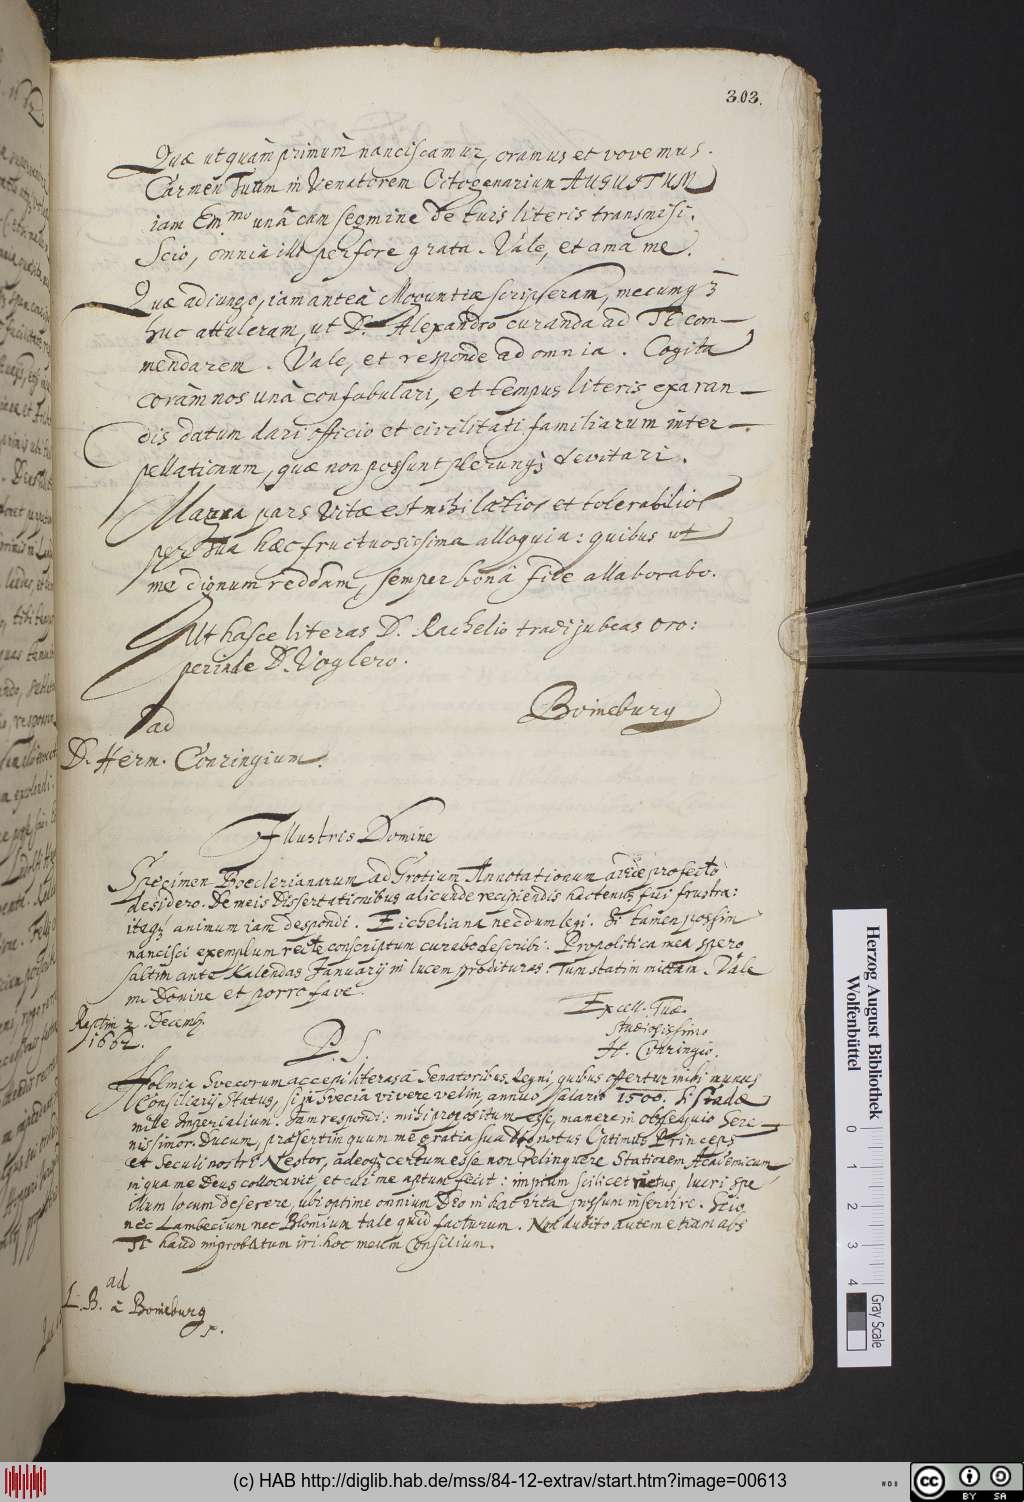 303.
Quæ ut quàm primùm nanciscamur, oramus et vovemus.
Carmen Tuum in Venatorem Octogenarium AUGUSTUM
iam Em.mo unâ cum segmine de tuis literis transmisi.
Scio, omnia illi perfore grata. Vale, et ama me.
Quæ adiungo, iam anteà Moguntiæ scripseram, mecumq3
huc attuleram, ut D. Alexandro curanda ad Te com-
mendarem. Vale, et responde ad omnia. Cogita
coràm nos unà confabulari, et tempus literis exaran-
dis datum dari officio et civilitati familiarum inter-
pellationum, quæ non possunt plerunq3 devitari.
Magna pars Vitæ est mihi latior et tolerabilior
per Tua hæc fructuosissima alloquia: quibus ut
me dignum reddam, semper bonâ fide allaborabo.
Ut hasce literas D. Rachelio tradi jubeas oro:
perinde D. Voglero.
Boineburg
ad
D. Herm. Conringium.
Illustris Domine
Specimen Boeclerianarum ad Grotium Annotationum avide profectò
desidero. De meis Dissertationibus alicunde recipiendis hactenus fui frustra:
itaq3 animum iam despondi. Eicheliana necdum legi. Si tamen possim
nancisci exemplum rectè conscriptum curabo describi. Propolitica mea spero
saltim ante Kalendas Januarij in lucem prodituras. Tum statim mittam. Vale
mi Domine et porro fave.
Raptim 2. Decemb.
1662.
Excell. Tuæ
Studiosissimo
H. Conringio.
P. S.
Holmia Svecorum accepi literas à Senatoribus Regni, quibus offertur mihi munus
Consiliarij Status, si in Svecia vivere velim, annuo salario 1500.
mille Imperialium. Iam respondi: mihi propositum esse, manere in obsequio Sere-
nissimor. Ducum, præsertim quum me gratia sua dignetur Optimus Princeps
et Seculi nostri Nestor, adeoq3 certum esse non relinquere Stationem Academicam
in qua me Deus collocavit, et cui me aptum fecit: impium scilicet lucri spe
illum locum deserere, ubi optime omnium Deo in hac vita possum inservire. Scio
nec Lambecium nec Blomium tale quid facturum. Non dubito autem etiam abs
Te haud improbatum iri hoc meum Consilium.
ad
L. B. à Boineburg
Herzog August Bibliothek
Wolfenbüttel
0 1 2 3 4
Gray Scale
(c) HAB http://diglib.hab.de/mss/84-12-extrav/start.htm?image=00613
cc BY SA